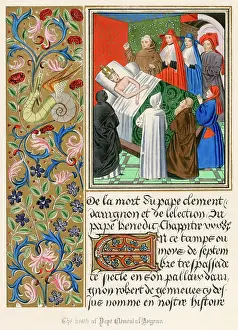 De la mort du pape clement
davignon et de lelection du
pape benedic Chapitre
En ce temps ou
mois de septem
bre trespassa de
ce siecle en son pallais davi
gnon robert de genneues cy des
sus nomme en nostre histoire
The death of Pope Clement at Avignon